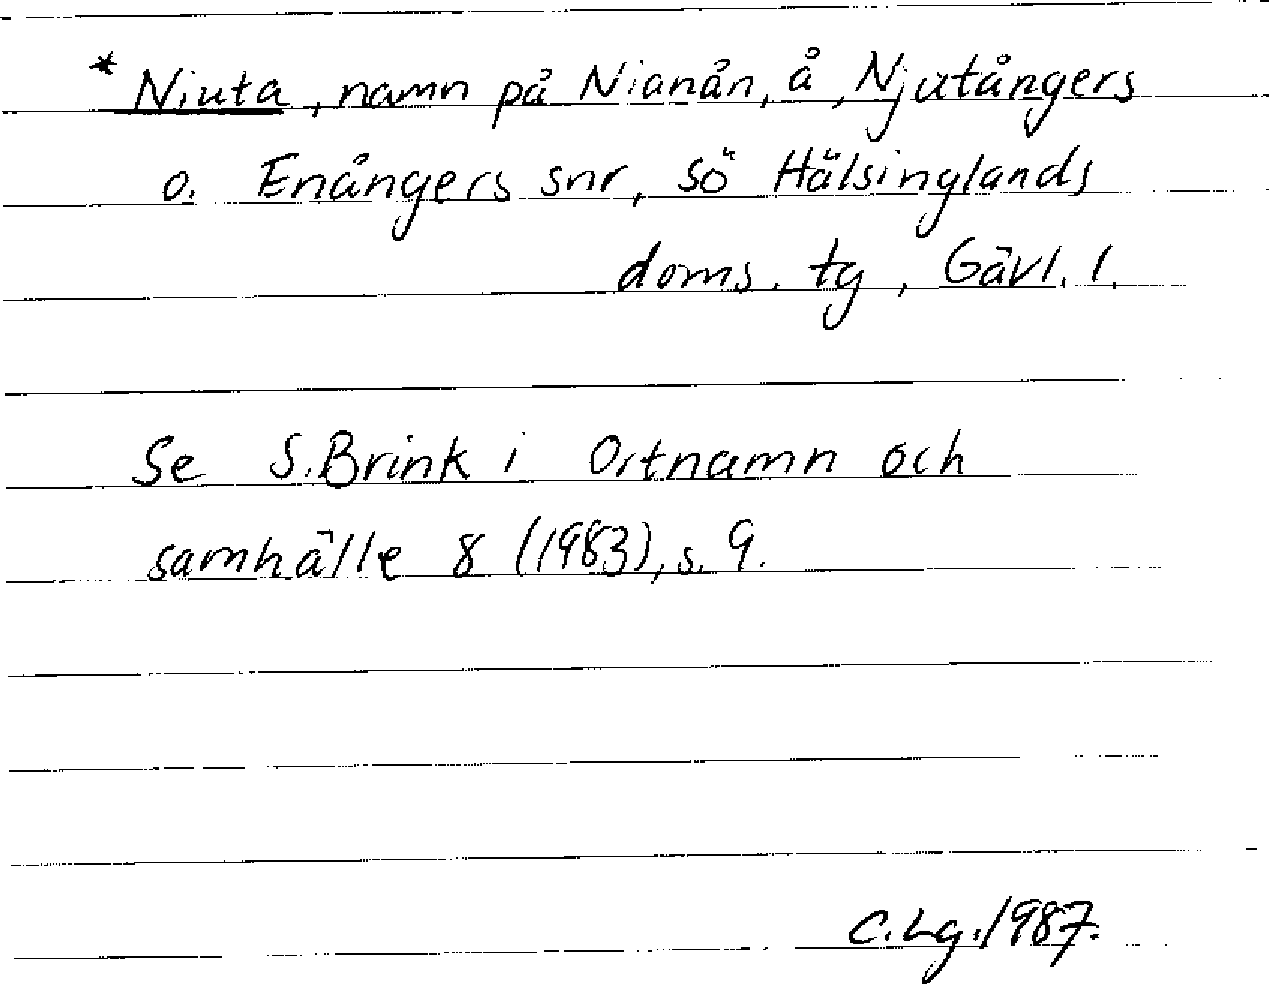 * Niuta, namn på Nianån, å, Njutångers
o. Enångers snr, sö Hälsinglands
doms. tg, Gävl. l.
Se S. Brink i Ortnamn och
samhälle 8 (1983), s. 9.
C. Lg. 1987.